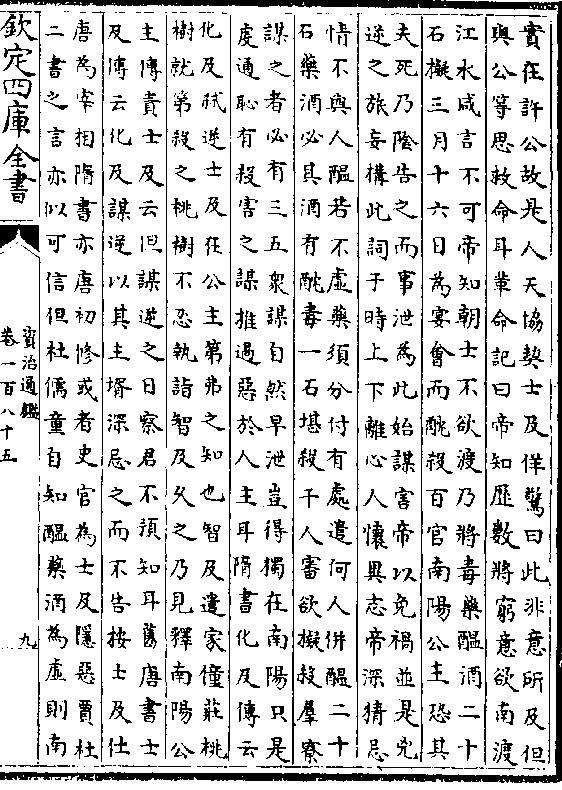 實在許公故是人天協契士及佯驚曰此非意所及但
與公等思救命耳革命記曰帝知歷數將窮意欲南渡
江水咸言不可帝知朝士不欲渡乃將毒藥醖酒二十
石擬三月十六日為宴會而酖殺百官南陽公主恐其
夫死乃陰告之而事泄為此始謀害帝以免禍並是兇
逆之旅妄構此詞于時上下離心人懷異志帝深猜忌
情不與人醖若不虛藥須分付有處遣何人併醖二十
石藥酒必其酒有酖毒一石堪殺千人審欲擬殺羣寮
謀之者必有三五衆謀自然早泄豈得獨在南陽只是
䖍通恥有殺害之謀推過惡於人主耳隋書化及傳云
化及弑逆士及在公主第弗之知也智及遣家僮莊桃
樹就第殺之桃樹不忍執詣智及久之乃見釋南陽公
主傳責士及云但謀逆之日察君不預知耳舊唐書士
及傳云化及謀逆以其主壻深忌之而不告按士及仕
唐為宰相隋書亦唐初修或者史官為士及隱惡賈杜
二書之言亦似可信但杜儒童自知醖藥酒為虛則南
欽定四庫全書
資治通鑑
卷一百八十五
九